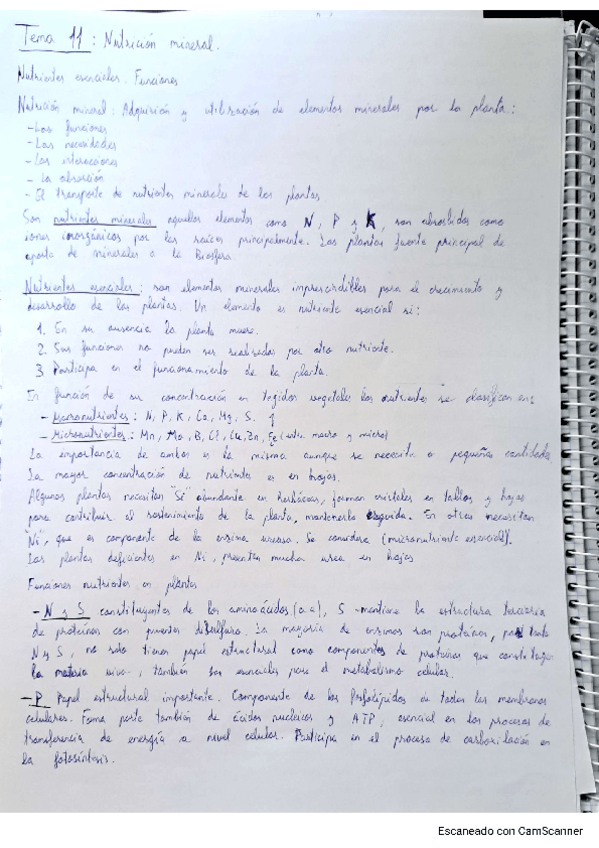 Tema 11: Nutrición mineral.
Nutrientes esenciales. Funciones
Nutrición mineral: Adquisición y utilización de elementos minerales por la planta:
- Las funciones
- Las necesidades
- Las interacciones
- La absorción
- El transporte de nutrientes minerales de las plantas
Son nutrientes minerales aquellos elementos como N, P y K, son absorbidos como
iones inorgánicos por las raíces principalmente. Las plantas fuente principal de
aporte de minerales a la Biosfera.
Nutrientes esenciales: son elementos minerales imprescindibles para el crecimiento y
desarrollo de las plantas. Un elemento es nutriente esencial si:
1. En su ausencia la planta muere.
2. Sus funciones no pueden ser realizadas por otro nutriente.
3. Participa en el funcionamiento de la planta.
En función de su concentración en tejidos vegetales los nutrientes se clasifican en:
- Macronutrientes: N, P, K, Ca, Mg, S.
- Micronutrientes: Mn, Mo, B, Cl, Cu, Zn, Fe (entre macro y micro)
La importancia de ambos es la misma aunque se necesite a pequeñas cantidades.
La mayor concentración de nutrientes es en hojas.
Algunas plantas necesitan "Si" abundante en herbáceas, forman cristales en tallos y hojas
para contribuir al sostenimiento de la planta, mantenerla erguida. En otras necesitan
"Ni", que es componente de la enzima ureasa. Se considera (micronutriente esencial).
Las plantas deficientes en Ni, presentan mucha urea en hojas
Funciones nutrientes en plantas
- N y S constituyentes de los aminoácidos (a.a), S mantiene la estructura terciaria
de proteínas con puentes disulfuro. La mayoría de enzimas son proteínas, por tanto
N y S, no solo tienen papel estructural como componentes de proteínas que constituyen
la materia viva, también son esenciales para el metabolismo celular.
- P Papel estructural importante. Componente de los fosfolípidos de todas las membranas
celulares. Forma parte también de ácidos nucleicos y ATP, esencial en los procesos de
transferencia de energía a nivel celular. Participa en el proceso de carboxilación en
la fotosíntesis.
Escaneado con CamScanner